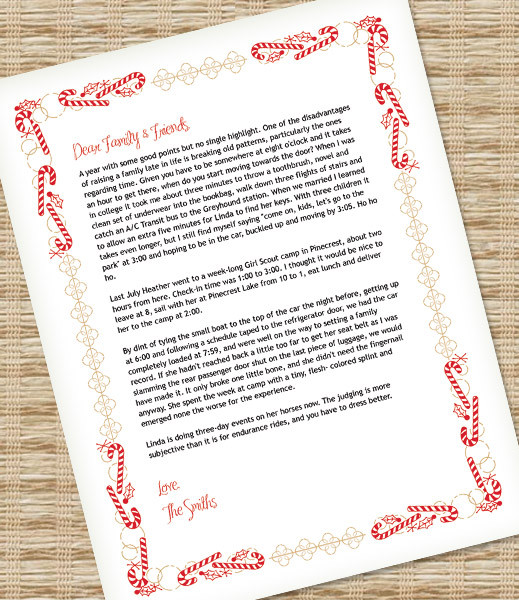 Dear Family & Friends,
A year with some good points but no single highlight. One of the disadvantages
of raising a family late in life is breaking old patterns, particularly the ones
regarding time. Given you have to be somewhere at eight o'clock and it takes
an hour to get there, when do you start moving towards the door? When I was
in college it took me about three minutes to throw a toothbrush, novel and
clean set of underwear into the bookbag, walk down three flights of stairs and
catch an A/C Transit bus to the Greyhound station. When we married I learned
to allow an extra five minutes for Linda to find her keys. With three children it
takes even longer, but I still find myself saying "come on, kids, let's go to the
park" at 3:00 and hoping to be in the car, buckled up and moving by 3:05. Ho ho
ho.
Last July Heather went to a week-long Girl Scout camp in Pinecrest, about two
hours from here. Check-in time was 1:00 to 3:00. I thought it would be nice to
leave at 8, sail with her at Pinecrest Lake from 10 to 1, eat lunch and deliver
her to the camp at 2:00.
By dint of tying the small boat to the top of the car the night before, getting up
at 6:00 and following a schedule taped to the refrigerator door, we had the car
completely loaded at 7:59, and were well on the way to setting a family
record. If she hadn't reached back a little too far to get her seat belt as I was
slamming the rear passenger door shut on the last piece of luggage, we would
have made it. It only broke one little bone, and she didn't need the fingernail
anyway. She spent the week at camp with a tiny, flesh- colored splint and
emerged none the worse for the experience.
Linda is doing three-day events on her horses now. The judging is more
subjective than it is for endurance rides, and you have to dress better.
Love,
The Smiths